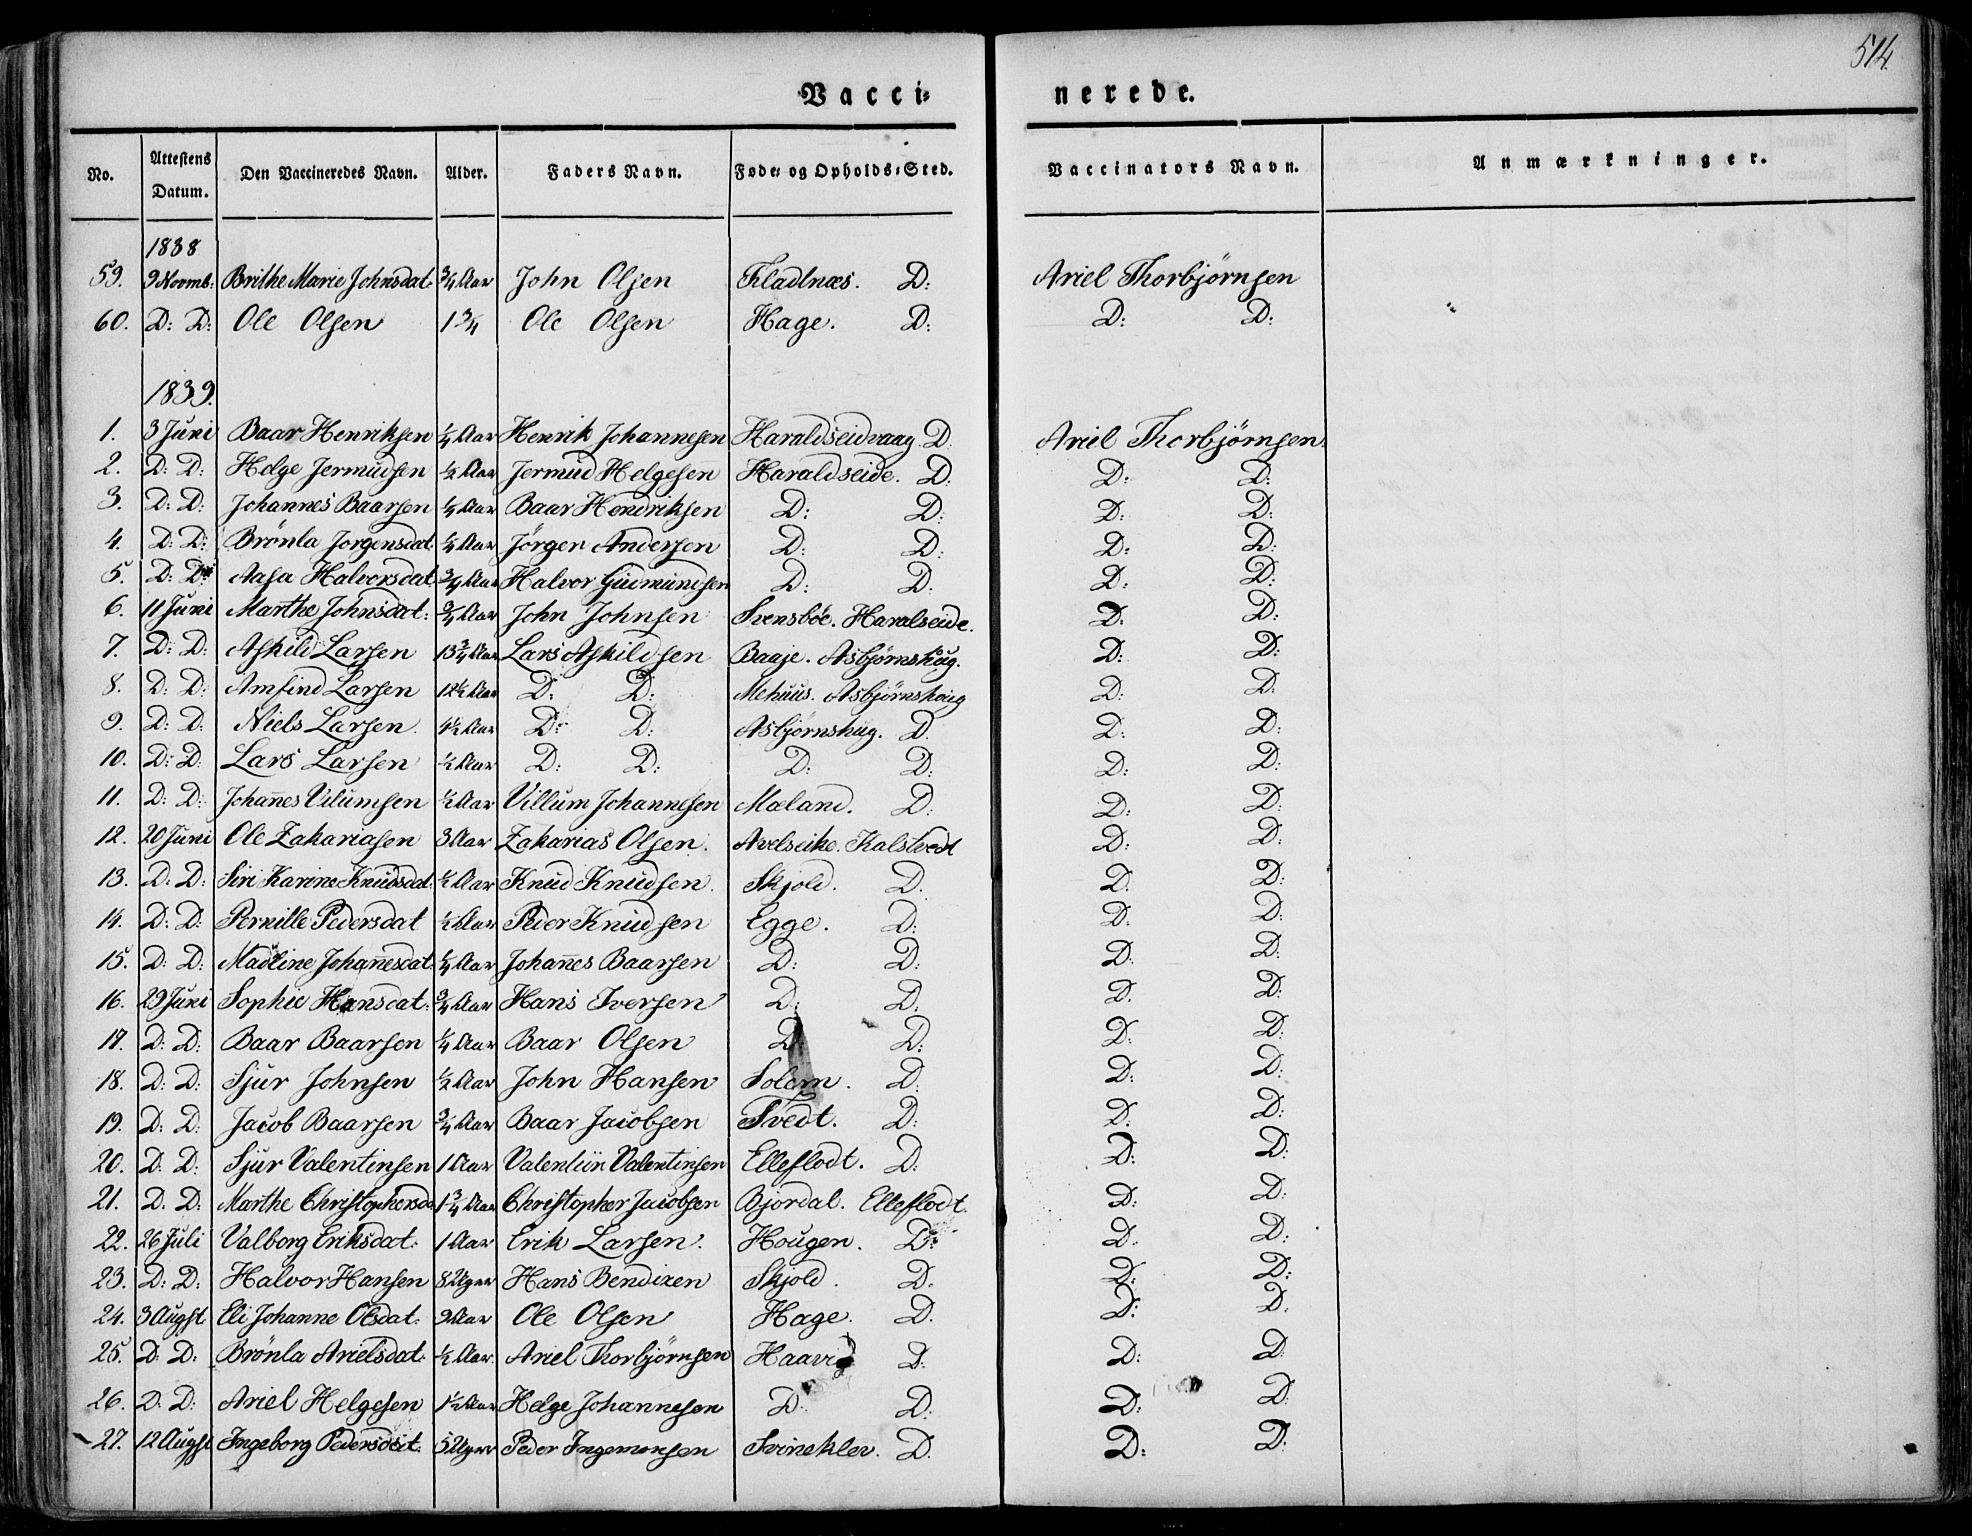 514.
Vacci= nerede.
No. Attestens Datum. Den Vaccineredes Navn. Alder. Faders Navn. Føde= og Opholds=Sted. Vaccinators Navn. Anmærkninger.
1838
59. 9 Novmb: Brithe Marie Johnsdat: 3/4 Aar John Olsen Fladlnæs. D: Ariel Thorbjørnsen
60. D: D: Ole Olsen 1 3/4 Ole Olsen Hage. D: D: D:
1839.
1. 3 Juni Baar Henriksen 1/4 Aar Henrik Johannesen Haraldseidvaag. D. Ariel Thorbjørnsen
2. D: D: Helge Jermudsen 1/2 Aar Jermud Helgesen Haraldseide. D. D: D:
3. D: D: Johannes Baarsen 1/4 Aar Baar Hendriksen D: D: D: D:
4. D: D: Brønla Jørgensdat: 1/4 Aar Jørgen Andersen D: D: D: D:
5. D: D: Aasa Halvorsdat: 3/4 Aar Halvor Gudmundsen D: D: D: D:
6. 11 Juni Marthe Johnsdat: 3/4 Aar John Johnsen Svensbøe. Haralseide. D: D:
7. D: D: Askild Larsen 13 3/4 Aar Lars Askildsen Baaje. Asbjørnshug. D: D:
8. D: D: Amfind Larsen 12 1/2 Aar D: D: Mehuus. Asbjørnshoug D: D:
9. D: D: Niels Larsen 4 1/2 Aar D: D: Asbjørnshug. D. D: D:
10. D: D. Lars Larsen 1/2 Aar D: D: D: D: D: D:
11. D: D: Johan̄es Vilumsen 1/2 Aar Villum Johannesen Mæland. D: D: D:
12. 20 Juni Ole Zakariasen 3 Aar Zakarias Olsen. Avelseike. Kalstvedt D: D:
13. D: D: Siri Karine Knudsdat: 1/2 Aar Knud Knudsen. Skjold. D. D. D:
14. D: D: Pernille Pedersdat 1/2 Aar Peder Knudsen Egge. D: D: D:
15. D: D: Madline Johan̄esdat: 1/4 Aar Johan̄es Baarsen D: D: D: D:
16. 29 Juni Sophie Hansdat: 3/4 Aar Hans Iversen D: D: D. D:
17. D: D: Baar Baarsen 1/4 Aar Baar Olsen D: D. D: D:
18. D: D: Sjur Johnsen 1/2 Aar John Hansen Solem. D: D: D:
19. D: D: Jacob Baarsen 3/4 Aar Baar Jacobsen Tvedt. D: D. D:
20. D: D: Sjur Valentinsen 1 Aar Valentiin Valentinsen Elleflodt. D: D: D:
21. D. D: Marthe Christophersd. 1 3/4 Aar Christopher Jacobsen Bjordal. Elleflodt. D: D:
22. 26 Juli Valborg Eriksdat: 1 Aar Erik Larsen. Hougen. D: D: D:
23. D: D: Halvor Hansen 8 Uger Hans Bendixen Skjold. D. D: D:
24. 3 Augst Eli Johanne Olsdat: 9 Aar Ole Olsen Hage. D. D: D.
25. D: D: Brønla Arielsdat: 1/2 Aar. Ariel Thorbjørnsen Haavig D. D: D
26. D: D: Ariel Helgesen 1 1/2 Aar Helge Johannesen D. D: D: D
27. 12 Augst Ingeborg Pedersdat: 5 Uger Peder Ingemonsen Svineklev. D. D: D: